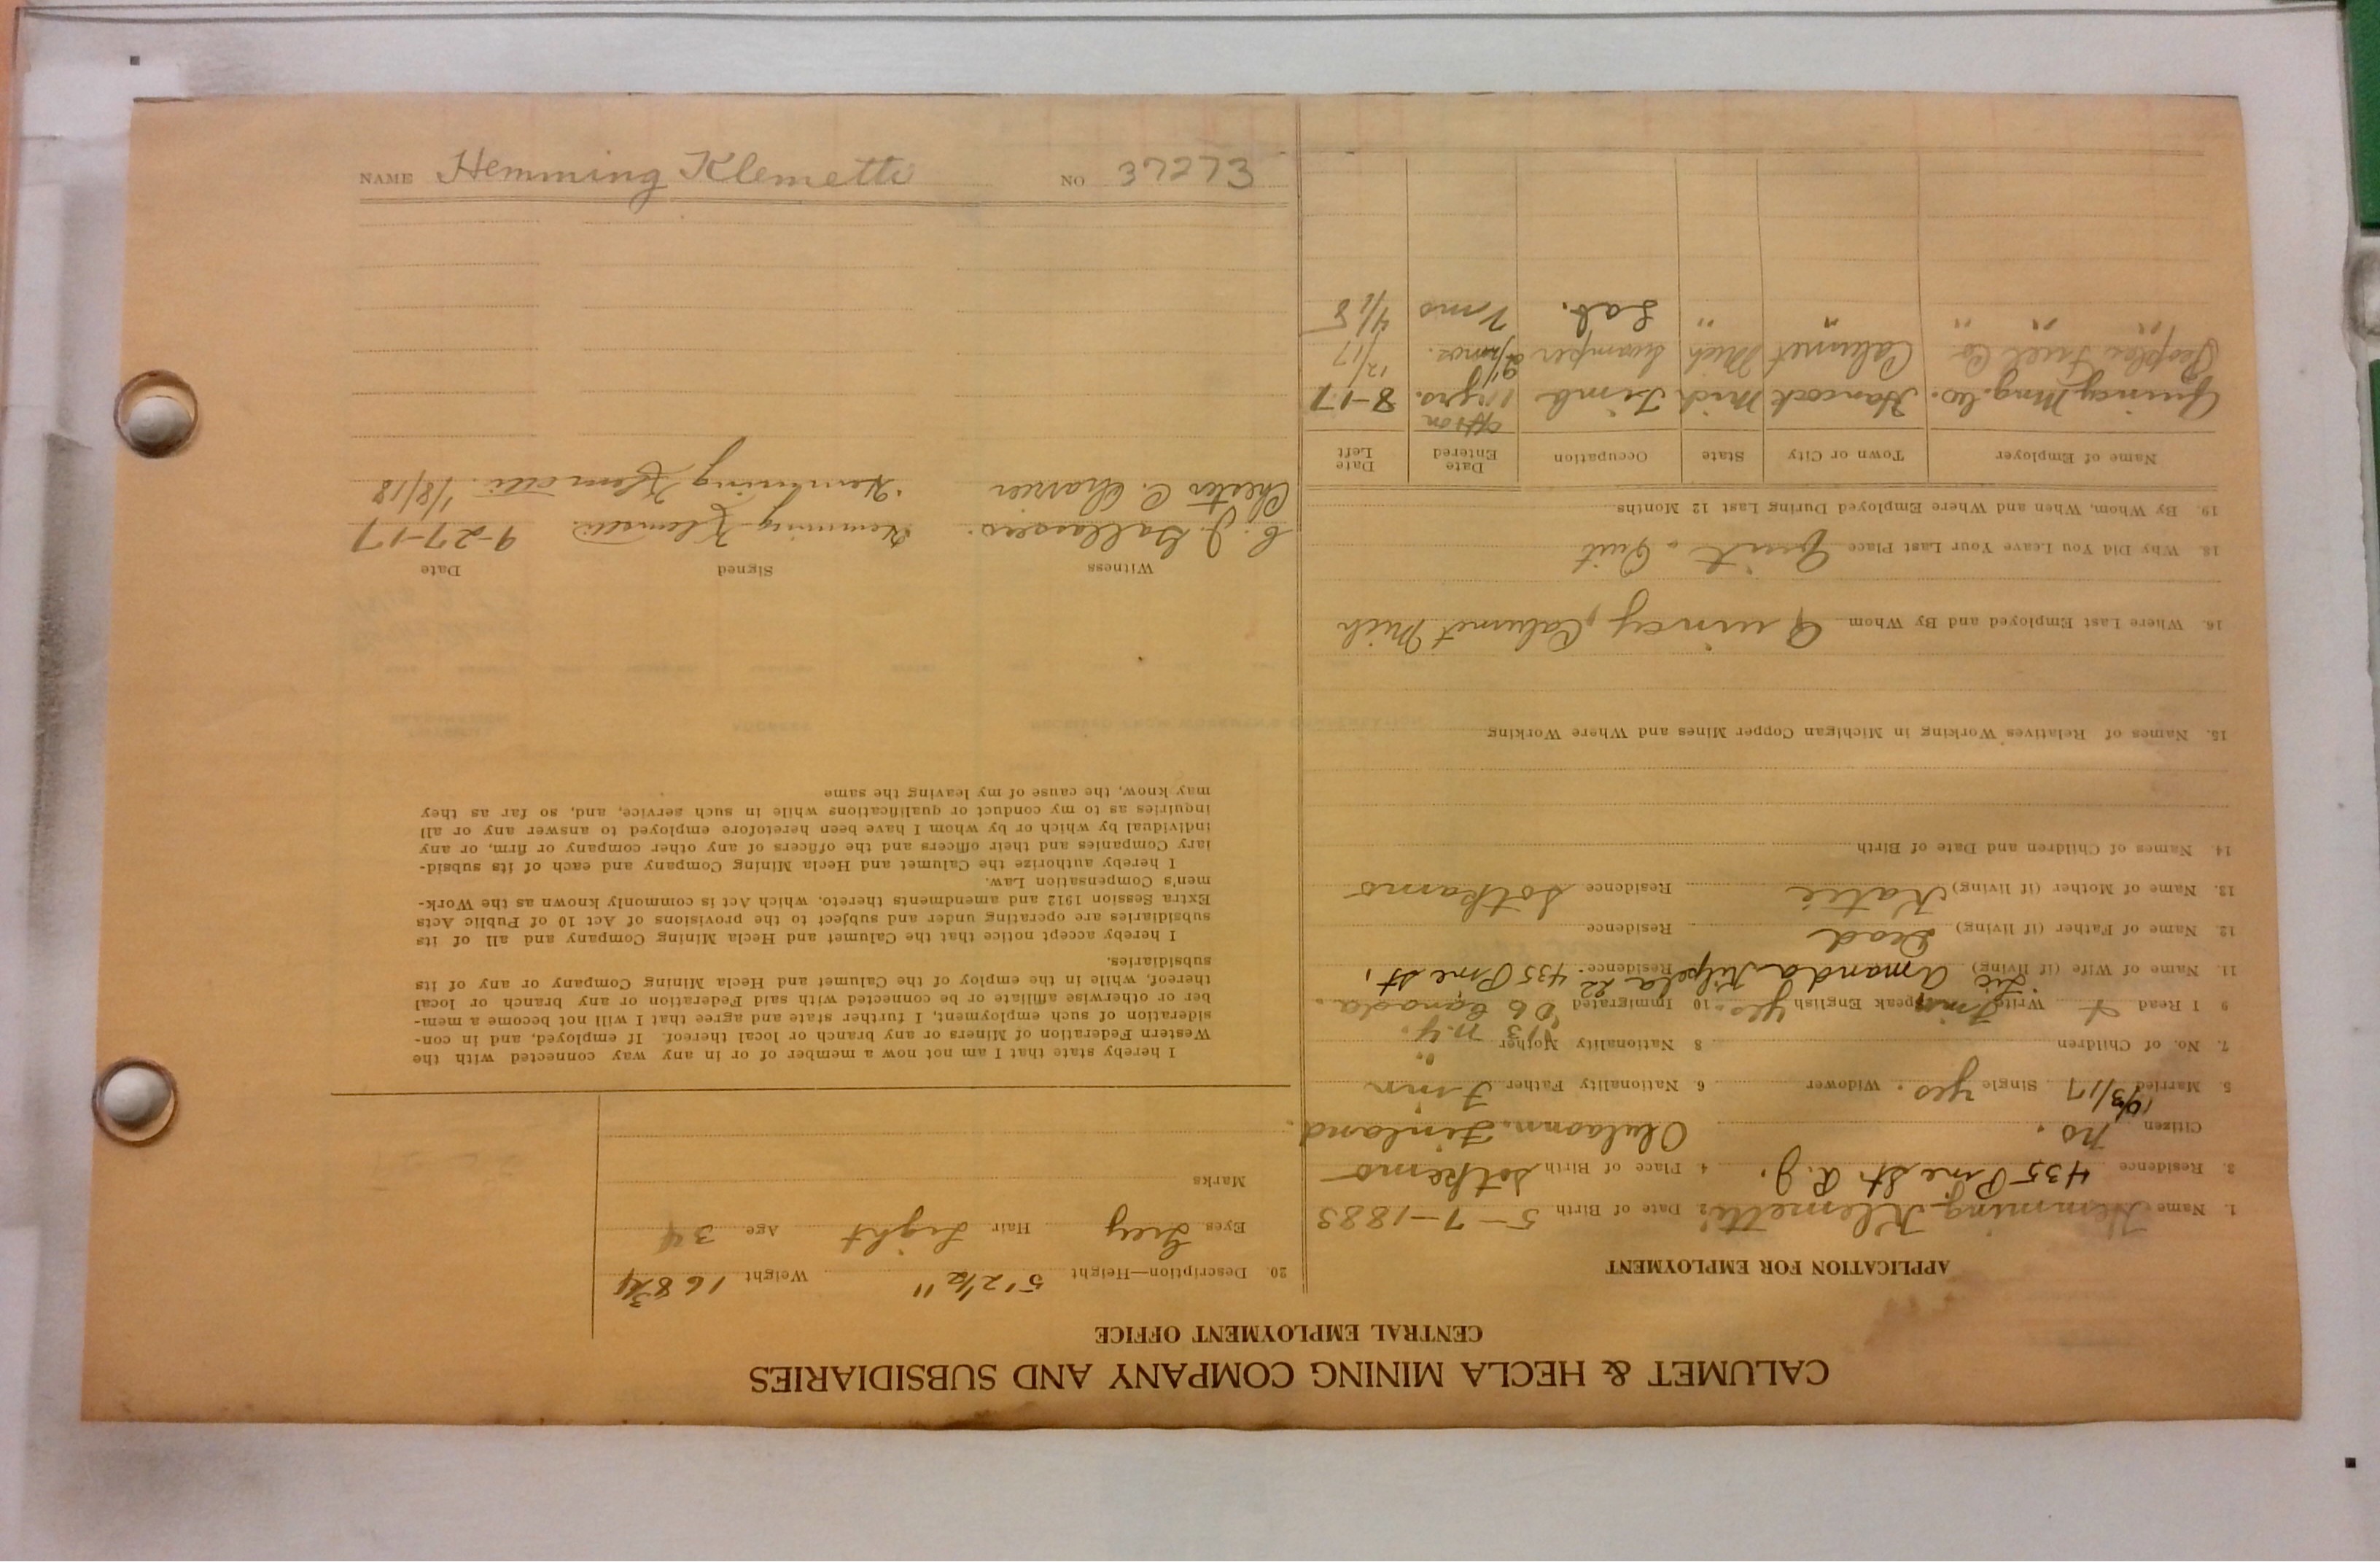 CALUMET & HECLA MINING COMPANY AND SUBSIDIARIES
CENTRAL EMPLOYMENT OFFICE
APPLICATION FOR EMPLOYMENT
1. Name Hemming Klemetti 2. Date of Birth 5-7-1883
3. Residence 435 Pine St. R. J. 4 Place of Birth Sotkamo
Citizen no. Olulaonn. Finland.
10/3/17
5. Married Single yes. Widower 6. Nationality Father Finn
7. No. of Children 8 Nationality Mother "
9 I Read + Write Finn Speak English yes. 10 Immigrated 06 Canada.
1/13 N.Y.
11. Name of Wife (if living) Amanda Kilpela 22 Residence 435 Pine St,
12. Name of Father (if living) Dead Residence
13. Name of Mother (if living) Katie Residence Sotkamo
14. Names of Children and Date of Birth
15. Names of Relatives Working in Michigan Copper Mines and Where Working
16. Where Last Employed and By Whom Quincy, Calumet Mich
18. Why Did You Leave Your Last Place Quit - Quit
19. By Whom, When and Where Employed During Last 12 Months
Name of Employer Town or City State Occupation Date Entered Date Left
off & on
Quincy Mng. Co. Hancock Mich Timb 11 yrs. 8-17
Peoples Fuel Co. Calumet Mich Swamper 2 1/2 mos. 12/17
" " " " " Lab. 7 ms 4/18
20. Description—Height 5' 2 1/2" Weight 168 3/4
Eyes Grey Hair Light Age 34
Marks
I hereby state that I am not now a member of or in any way connected with the
Western Federation of Miners or any branch or local thereof. If employed, and in con-
sideration of such employment, I further state and agree that I will not become a mem-
ber or otherwise affiliate or be connected with said Federation or any branch or local
thereof, while in the employ of the Calumet and Hecla Mining Company or any of its
subsidiaries.
I hereby accept notice that the Calumet and Hecla Mining Company and all of its
subsidiaries are operating under and subject to the provisions of Act 10 of Public Acts
Extra Session 1912 and amendments thereto, which Act is commonly known as the Work-
men's Compensation Law.
I hereby authorize the Calumet and Hecla Mining Company and each of its subsid-
iary Companies and their officers and the officers of any other company or firm, or any
individual by which or by whom I have been heretofore employed to answer any or all
inquiries as to my conduct or qualifications while in such service, and, so far as they
may know, the cause of my leaving the same
Witness Signed Date
Hemming Klemetti 9-27-17
Chester C. Hemming Klemetti 1/8/18
NAME Hemming Klemetti NO 37273